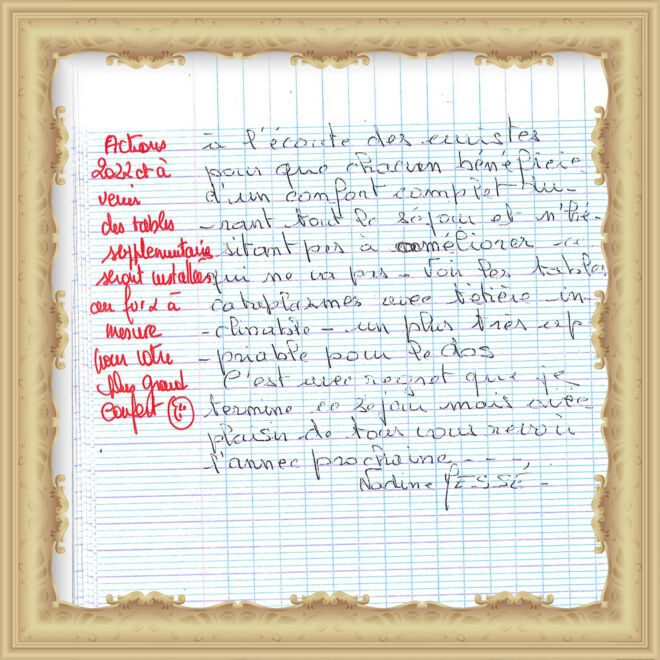 Actions
2022 et à
venir
des tables
supplémentaire
seront installées
au fur & à
mesure
pour votre
plus grand
confort
à l'écoute des curistes
pour que chacun bénéficie
d'un confort complet du-
-rant tout le séjour et n'hé-
-sitant pas à améliorer ce
qui ne va pas - Voir les tables
cataplasmes avec têtière in-
-clinable - un plus très app
-préciable pour le dos
C'est avec regret que je
termine ce séjour mais avec
plaisir de tous vous revoir
l'année prochaine - - -
Nadine